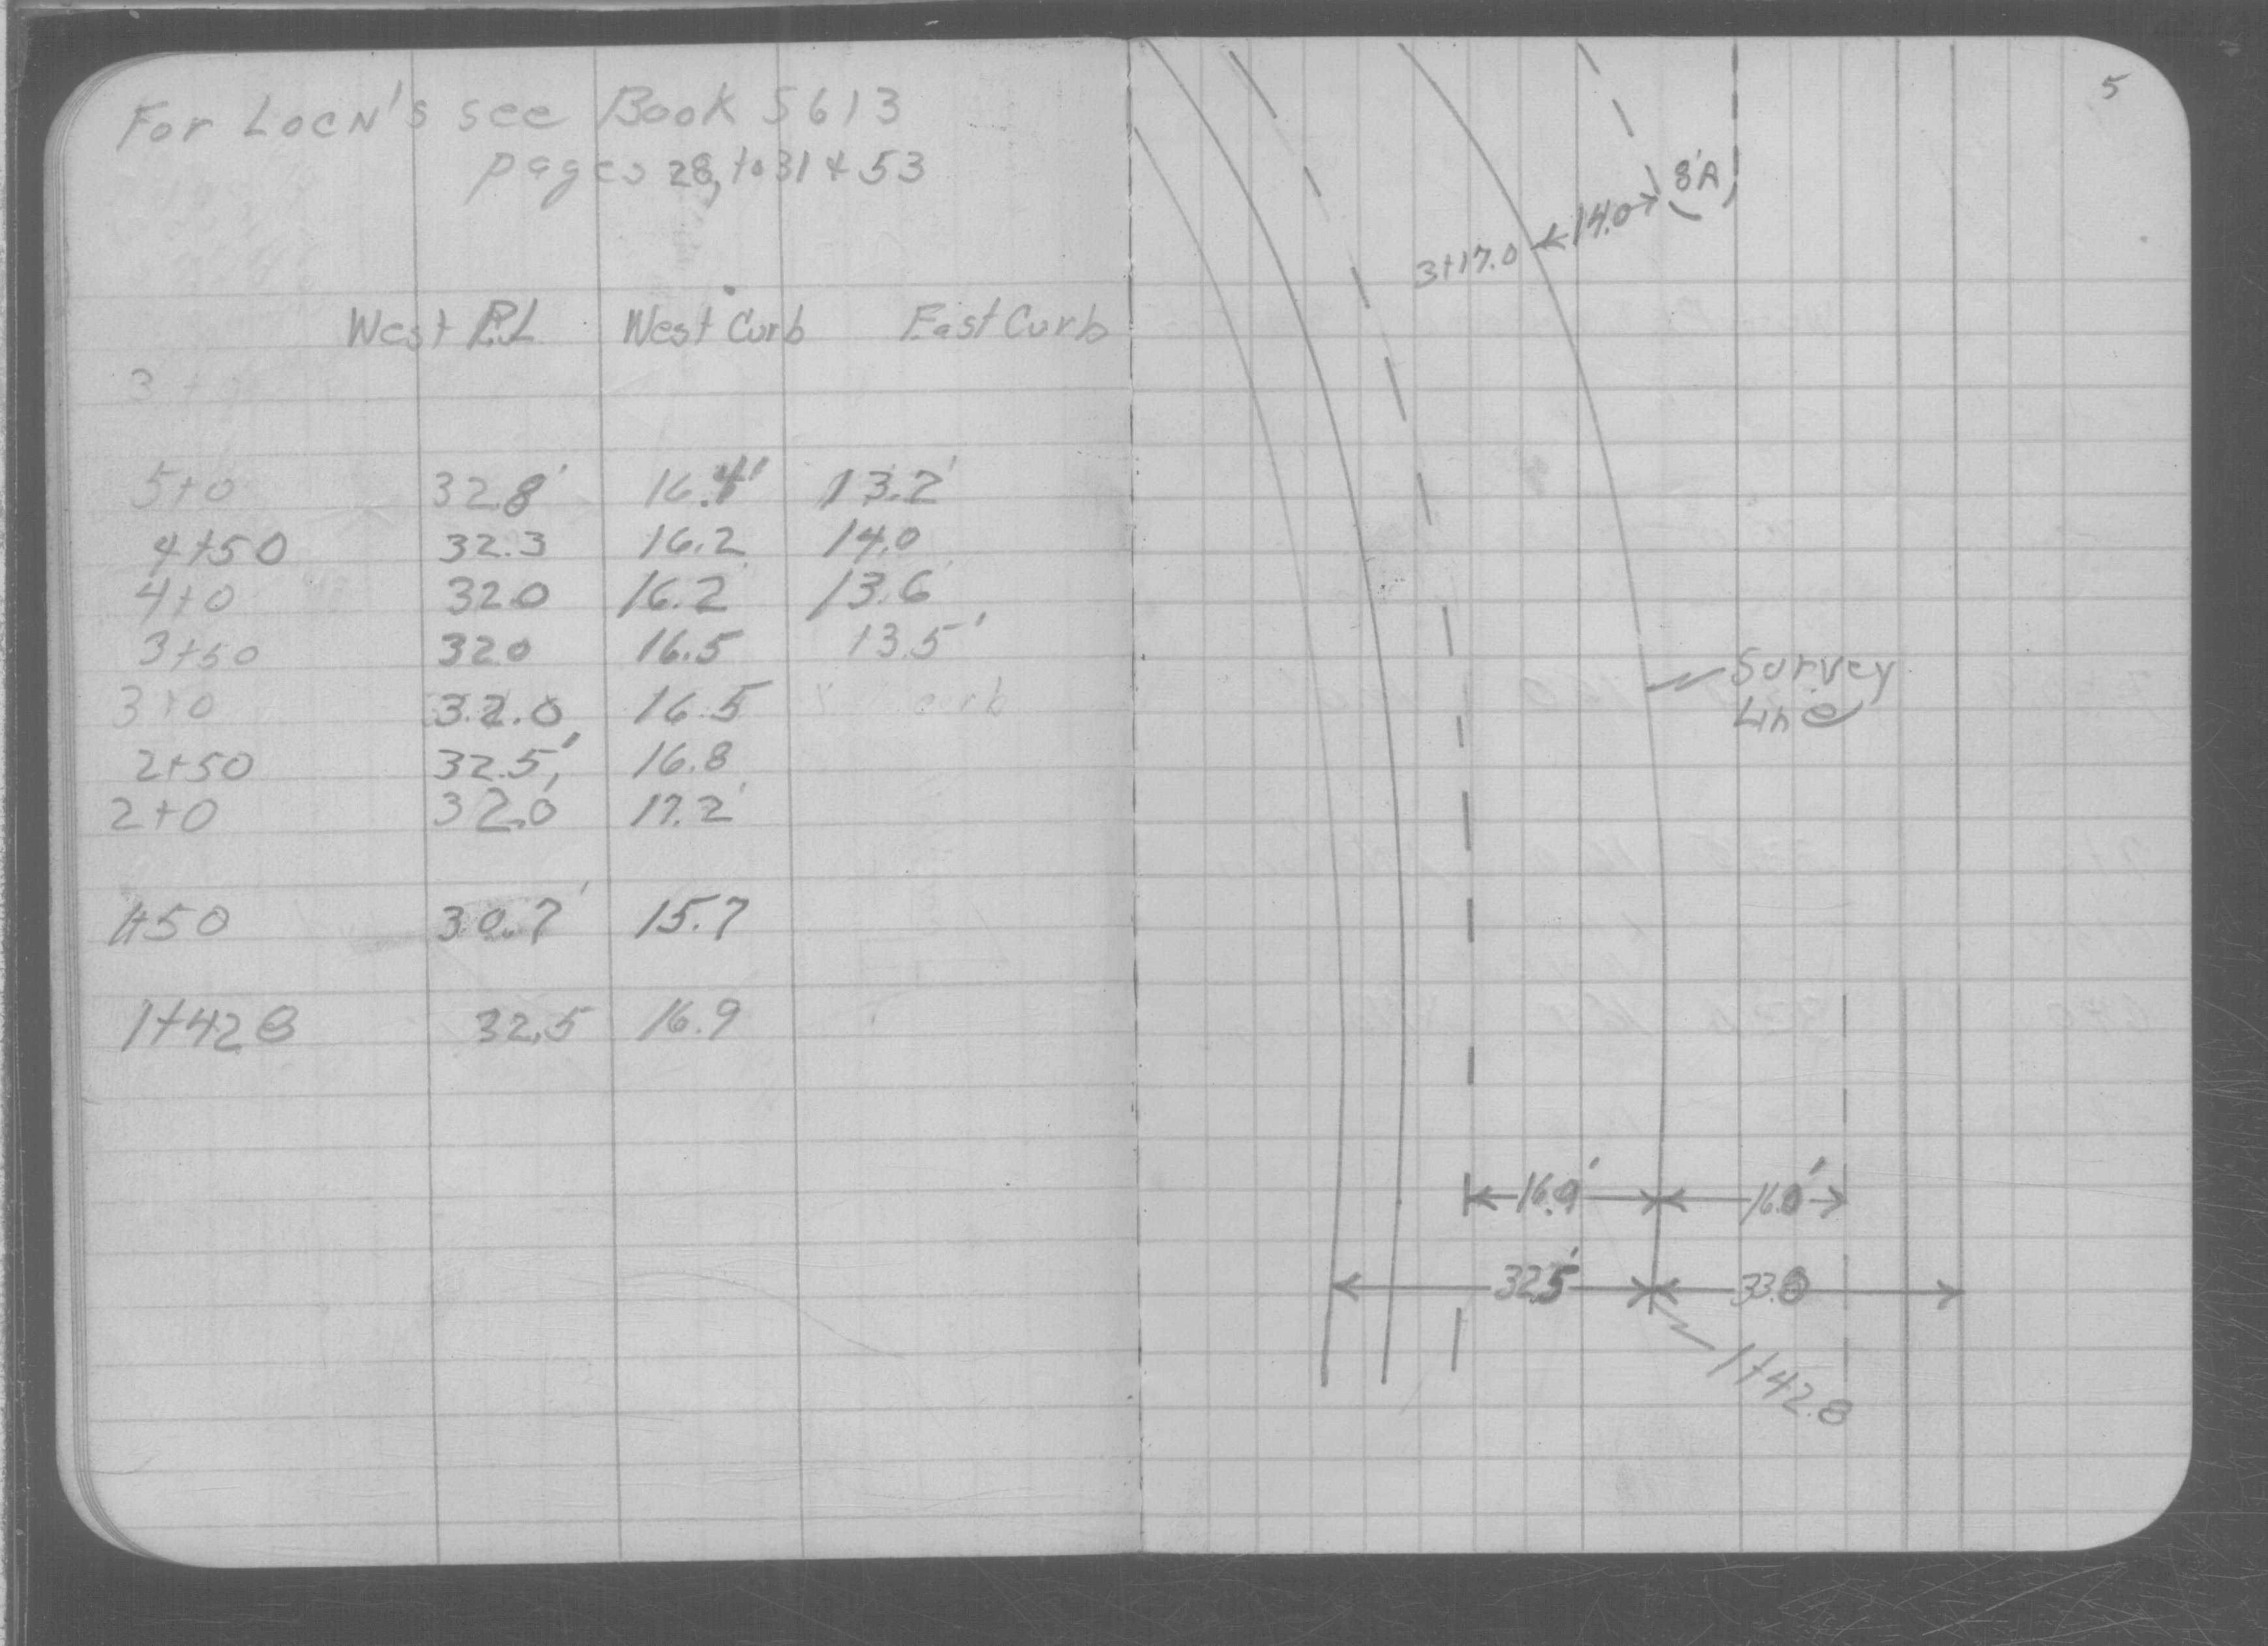 For Locn's see Book 5613
pages 28, to 31 & 53
West P.L West Curb East Curb
5+0 32.8' 16.4' 13.2'
4+50 32.3 16.2 14.0
4+0 32.0 16.2 13.6
3+50 32.0 16.5 13.5'
3+0 32.0 16.5
2+50 32.5' 16.8
2+0 32.0 17.2'
1+50 30.7' 15.7
1+42.8 32.5 16.9
5
8'R
14.0
3+17.0
Survey
Line
16.9' 16.0'
32.5' 33.0
1+42.8